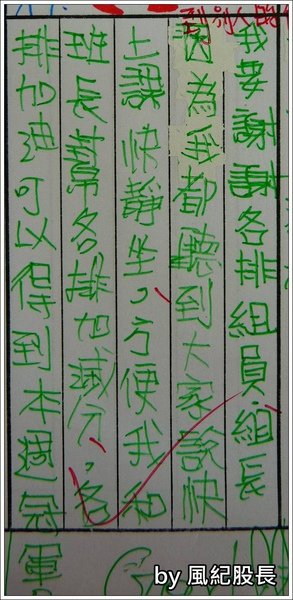 到別人的
我要謝謝各排組員、組長
因為我都聽到大家說快
上課快靜坐，方便我和
班長幫各排加減分，各
排加油可以得到本週冠軍
by 風紀股長